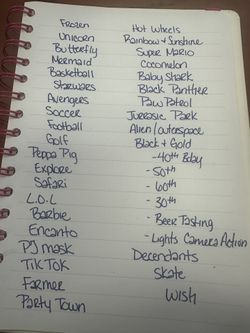 Frozen
Unicorn
Butterfly
Mermaid
Basketball
Starwars
Avengers
Soccer
Football
Golf
Peppa Pig
Explore
Safari
L.O.L
Barbie
Encanto
PJ mask
TIKTOK
Farmer
Party Town
Hot Wheels
Rainbow & Sunshine
Super Mario
Cocomelon
Baby Shark
Black Panther
Paw Patrol
Jurassic Park
Alien/outerspace
Black & Gold
- 40th Bday
- 50th
- 60th
- 30th
- Beer Tasting
- Lights Camera Action
Decendants
Skate
Wish